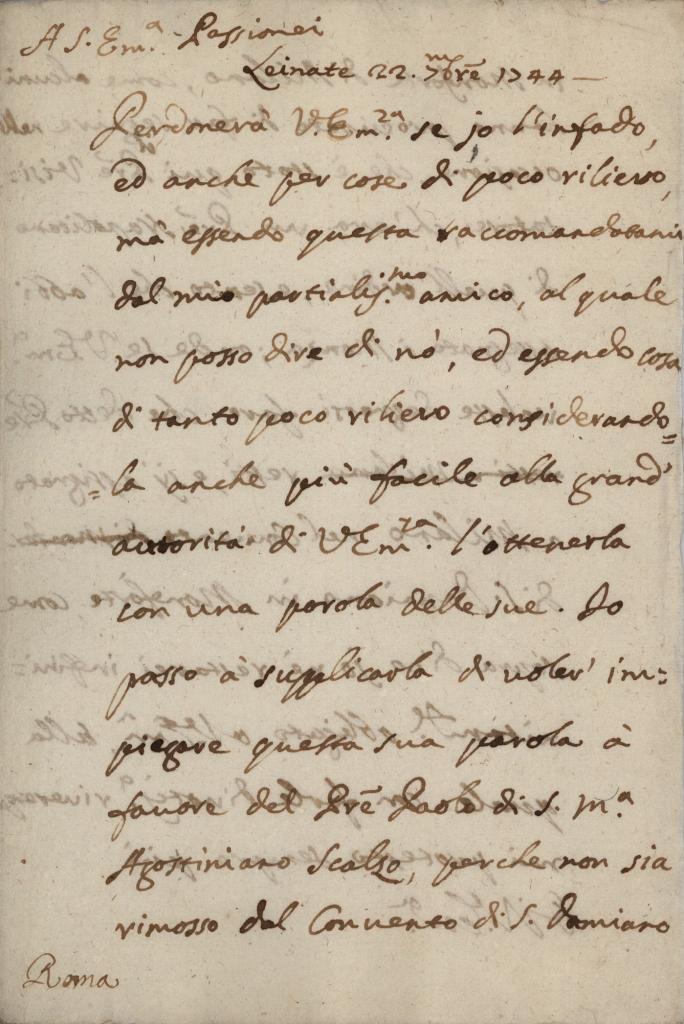 A S. Em.ª Passionei
Leinate 22. 7mbrē 1744 —
Perdonerà V. Em.za se jo l'infado,
ed anche per cose di poco rilievo,
mà essendo questa raccomandatami
dal mio partialis.mo amico, al quale
non posso dire di nò, ed essendo cosa
di tanto poco rilievo considerando=
=la anche più facile alla grand'
autorità di V Em.za l'ottenerla
con una parola delle sue. Io
passo à supplicarla di voler' im=
piegare questa sua parola à
favore del Prē Paolo di S. M.ª
Agostiniano Scalzo, perche non sia
rimosso dal Convento di S. Damiano
Roma